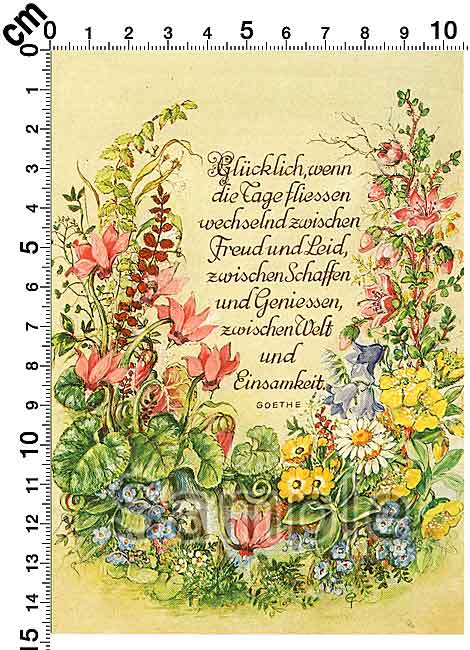 cm
0 1 2 3 4 5 6 7 8 9 10
0
1
2
3
4
5
6
7
8
9
10
11
12
13
14
15
Glücklich, wenn
die Tage fliessen
wechselnd zwischen
Freud und Leid,
zwischen Schaffen
und Geniessen,
zwischen Welt
und
Einsamkeit.
GOETHE
Sample